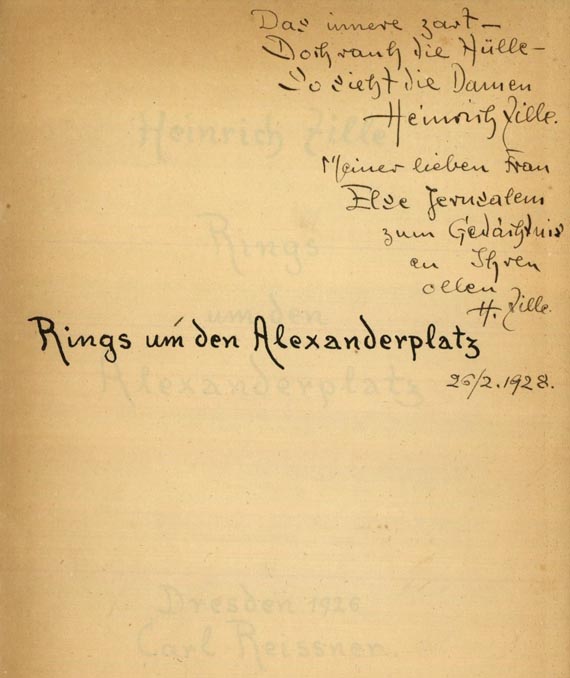 Das innere zart –
Doch rauh die Hülle –
So sieht die Damen
Heinrich Zille.
Meiner lieben Frau
Else Jerusalem
zum Gedächtnis
an Ihren
ollen
H. Zille.
Rings um den Alexanderplatz
26/2.1928.
Heinrich Zille
Rings
um den
Alexanderplatz
Dresden 1926
Carl Reissner.